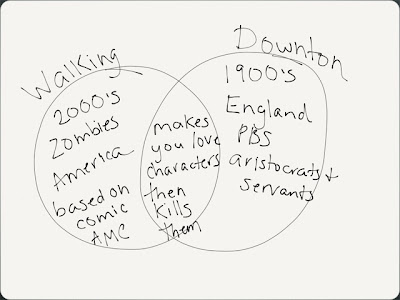 Walking
2000's
Zombies
America
based on
comic
AMC
makes
you love
characters
then
kills
them
Downton
1900's
England
PBS
aristocrats +
servants